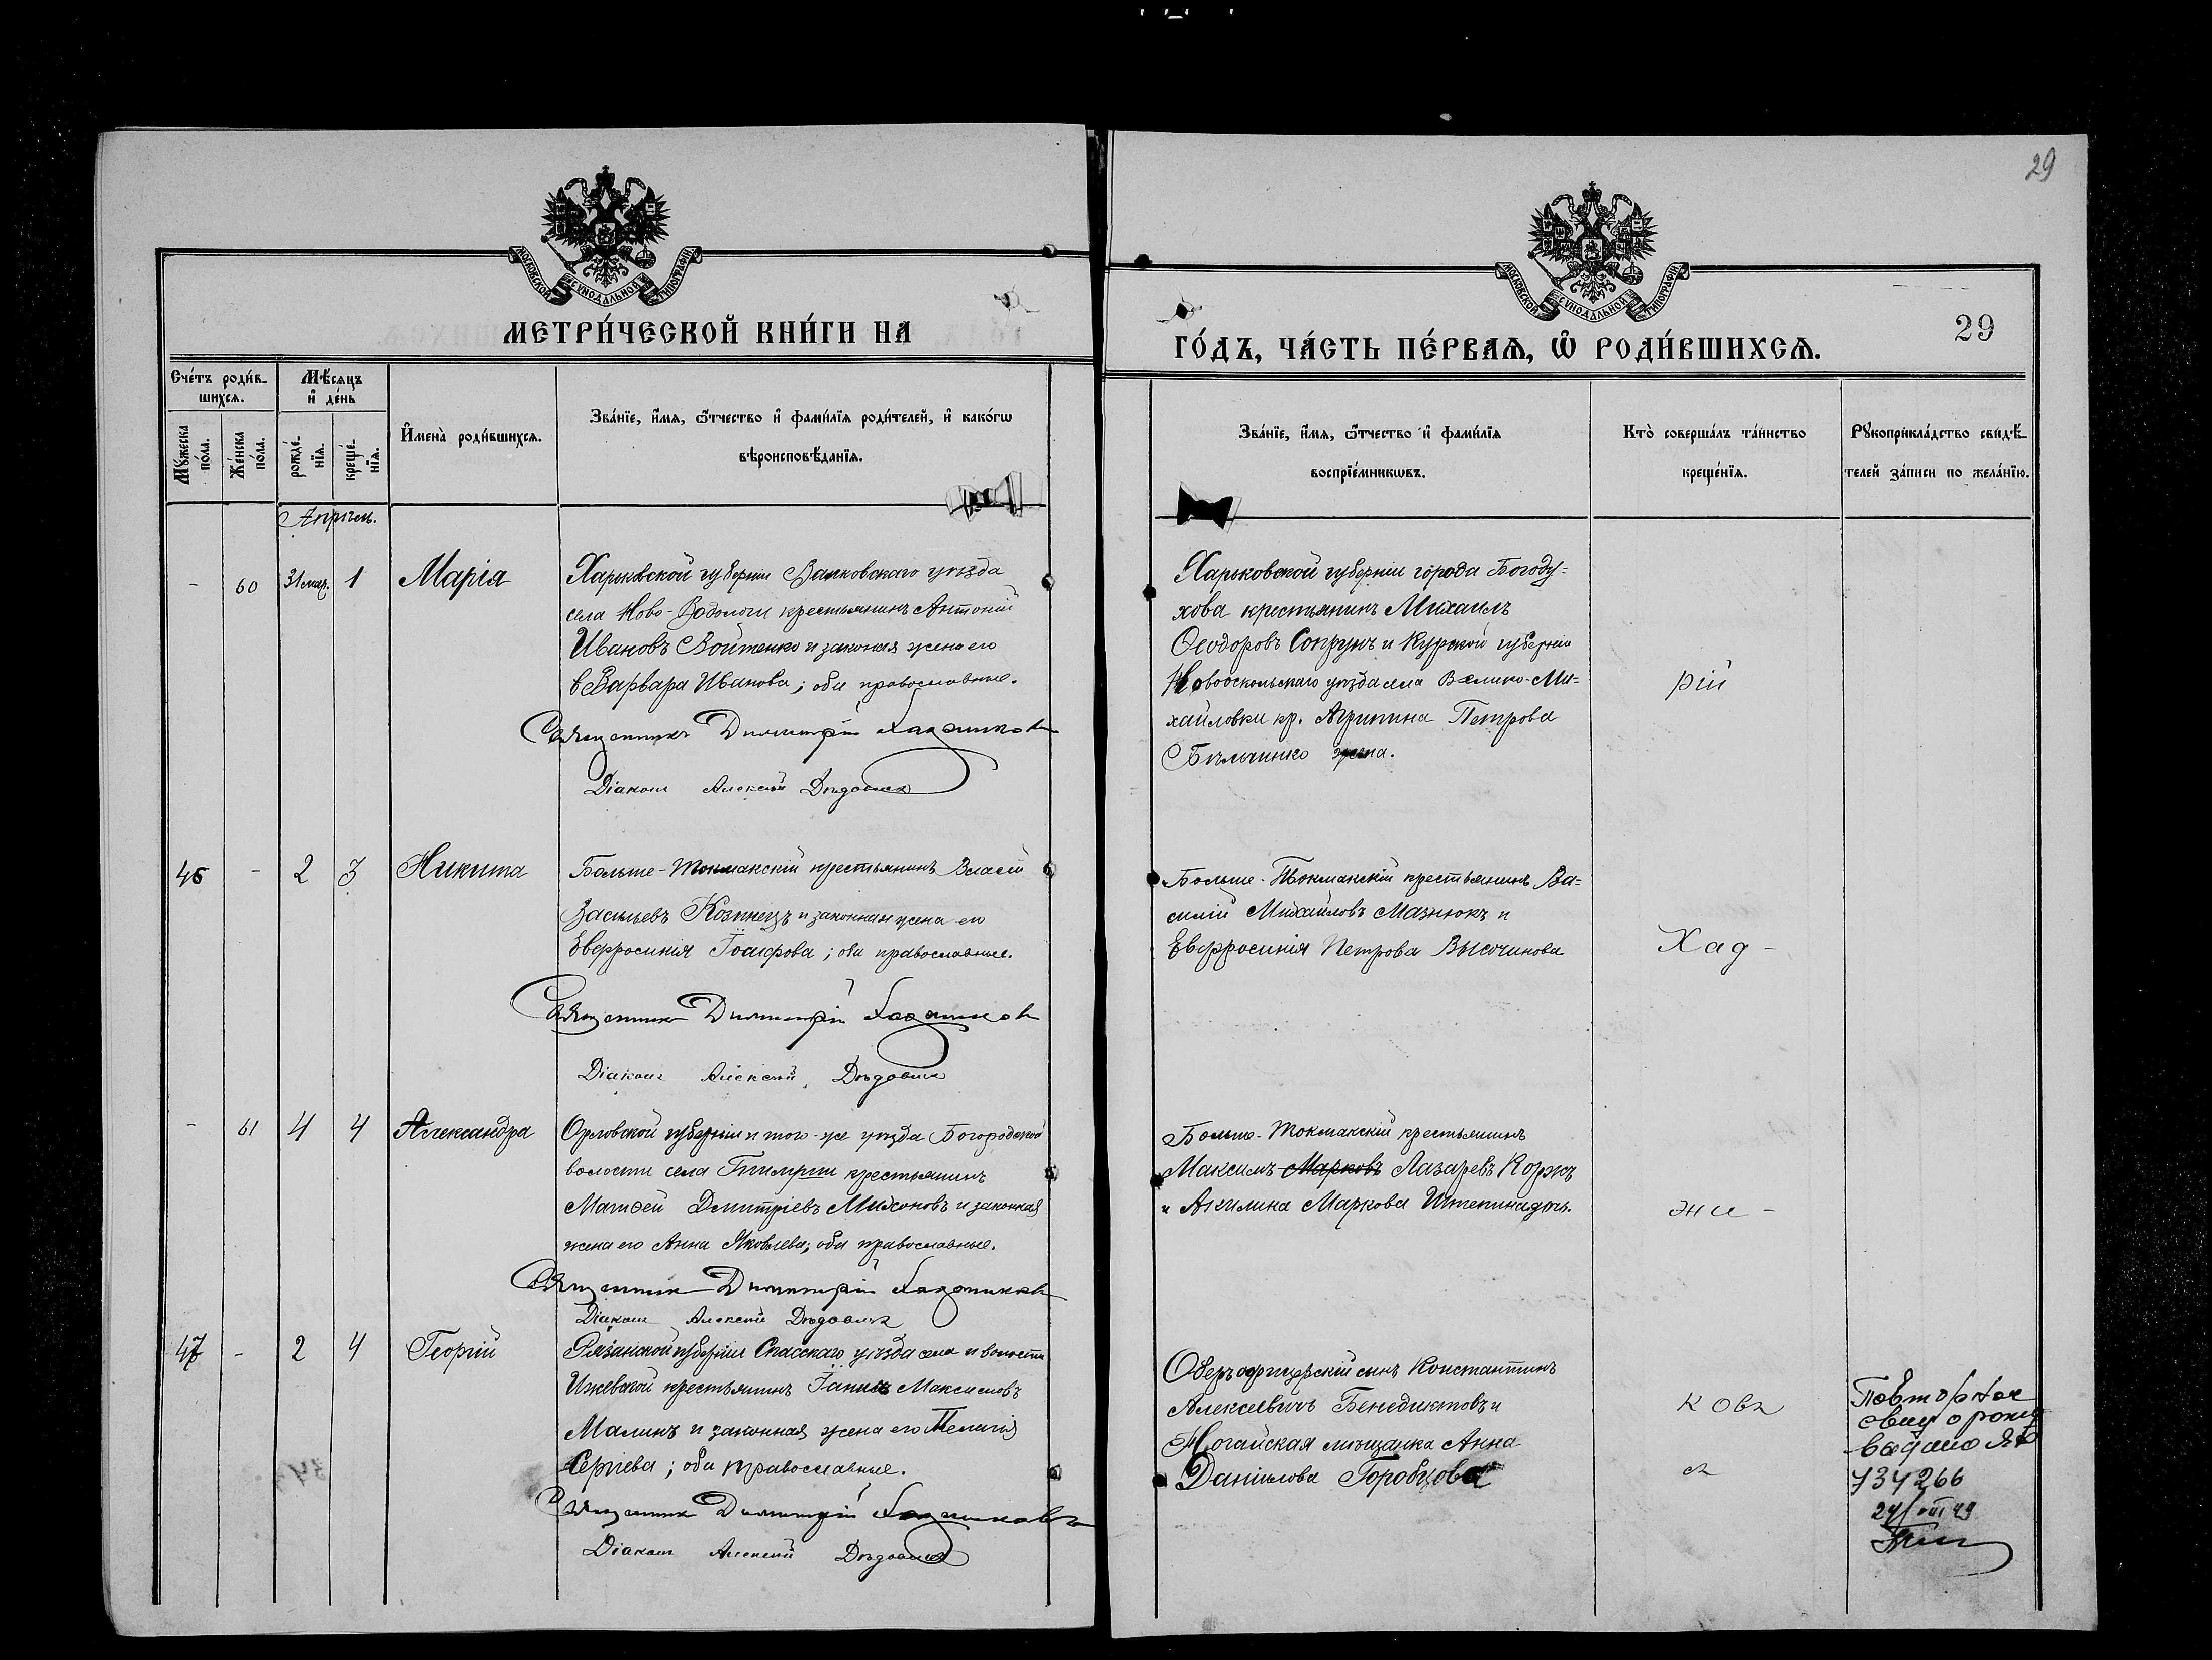 29
МОСКОВСКОЙ СУНОДАЛЬНОЙ ТИПОГРАФІИ
МЕТРИ́ЧЕСКОЙ КНИ́ГИ НА
Сче́тъ роди́вшихсѧ.
Мꙋ́жеска по́ла.
Же́нска по́ла.
Мѣ́сѧцъ и҆ де́нь
рожде́нїѧ.
креще́нїѧ.
И҆мена̀ роди́вшихсѧ.
Зва́нїе, и҆́мѧ, ѻ҆́тчество и҆ фами́лїѧ роди́телей, и҆ како́гѡ
вѣроисповѣ́данїѧ.
Апрѣль.
- 60 31 мар. 1 Марія
Харьковской губерніи Валковскаго уѣзда
села Ново-Водолаги крестьянинъ Антоній
Ивановъ Войтенко и законая жена его
Варвара Иванова; оба православные.
Священникъ Димитрій Хаджиковъ
Діаконъ Алексѣй
46 - 2 3 Никита
Больше-Токмакскій крестьянинъ Власій
Васильевъ и законная жена его
Евфросинія Іоасафова; оба православные.
Священникъ Димитрій Хаджиковъ
Діаконъ Алексѣй
- 61 4 4 Александра
Орловской губерніи и того-же уѣзда Богородской
волости села крестьянинъ
Матѳей Дмитріевъ Михоновъ и законная
жена его Анна Яковлева; оба православные.
Священникъ Димитрій Хаджиковъ
Діаконъ Алексѣй
47 - 2 4 Георгій
Рязанской губерніи Спасскаго уѣзда села и волости
Ижевской крестьянинъ Максимовъ
Малинъ и законная жена его Пелагія
Сергіева; оба православные.
Священникъ Димитрій Хаджиковъ
Діаконъ Алексѣй
МОСКОВСКОЙ СУНОДАЛЬНОЙ ТИПОГРАФІИ
ГО́ДЪ, ЧА́СТЬ ПЕ́РВАѦ, Ѡ҆ РОДИ́ВШИХСѦ.
29
Зва́нїе, и҆́мѧ, ѻ҆́тчество и҆ фами́лїѧ
воспрїе́мникѡвъ.
Кто̀ соверша́лъ та́инство
креще́нїѧ.
Рꙋкоприкла́дство свидѣ́телей за́писи по жела́нїю.
Харьковской губерніи города Богоду=
хова крестьянинъ Михаилъ
Ѳеодоровъ Сопрунъ и Курской губерніи
Новооскольскаго уѣзда села Велико-Ми=
хайловки кр. Агрипина Петрова
рій
Больше-Токмакскій крестьянинъ Ва=
силій Михайловъ Мазнюкъ и
Евфросинія Петрова Высочинова
Хад-
Больше-Токмакскій крестьянинъ
Максимъ Марковъ Лазаревъ Коржъ
и Акилина Маркова
жи-
Оберъ офицерскій сынъ Константинъ
Алексѣевичъ Бенедиктовъ и
Ногайская мѣщанка Анна
Даніилова Горобцова
ковъ
Повторное
свид о рожд
выдано ЯФ
734266
24/VIII 49